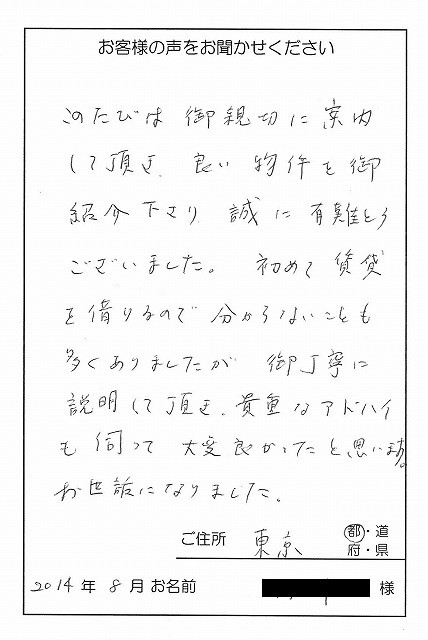 お客様の声をお聞かせください
このたびは 御親切に 案内
して頂き、良い 物件を御
紹介下さり 誠に 有難とう
ございました。 初めて 賃貸
を借りるので 分からないことも
多くありましたが 御丁寧に
説明して頂き、貴重なアドバイ
も 伺って 大変良かったと思います。
お世話になりました。
ご住所 東京 都・道
府・県
2014年 8月 お名前 様